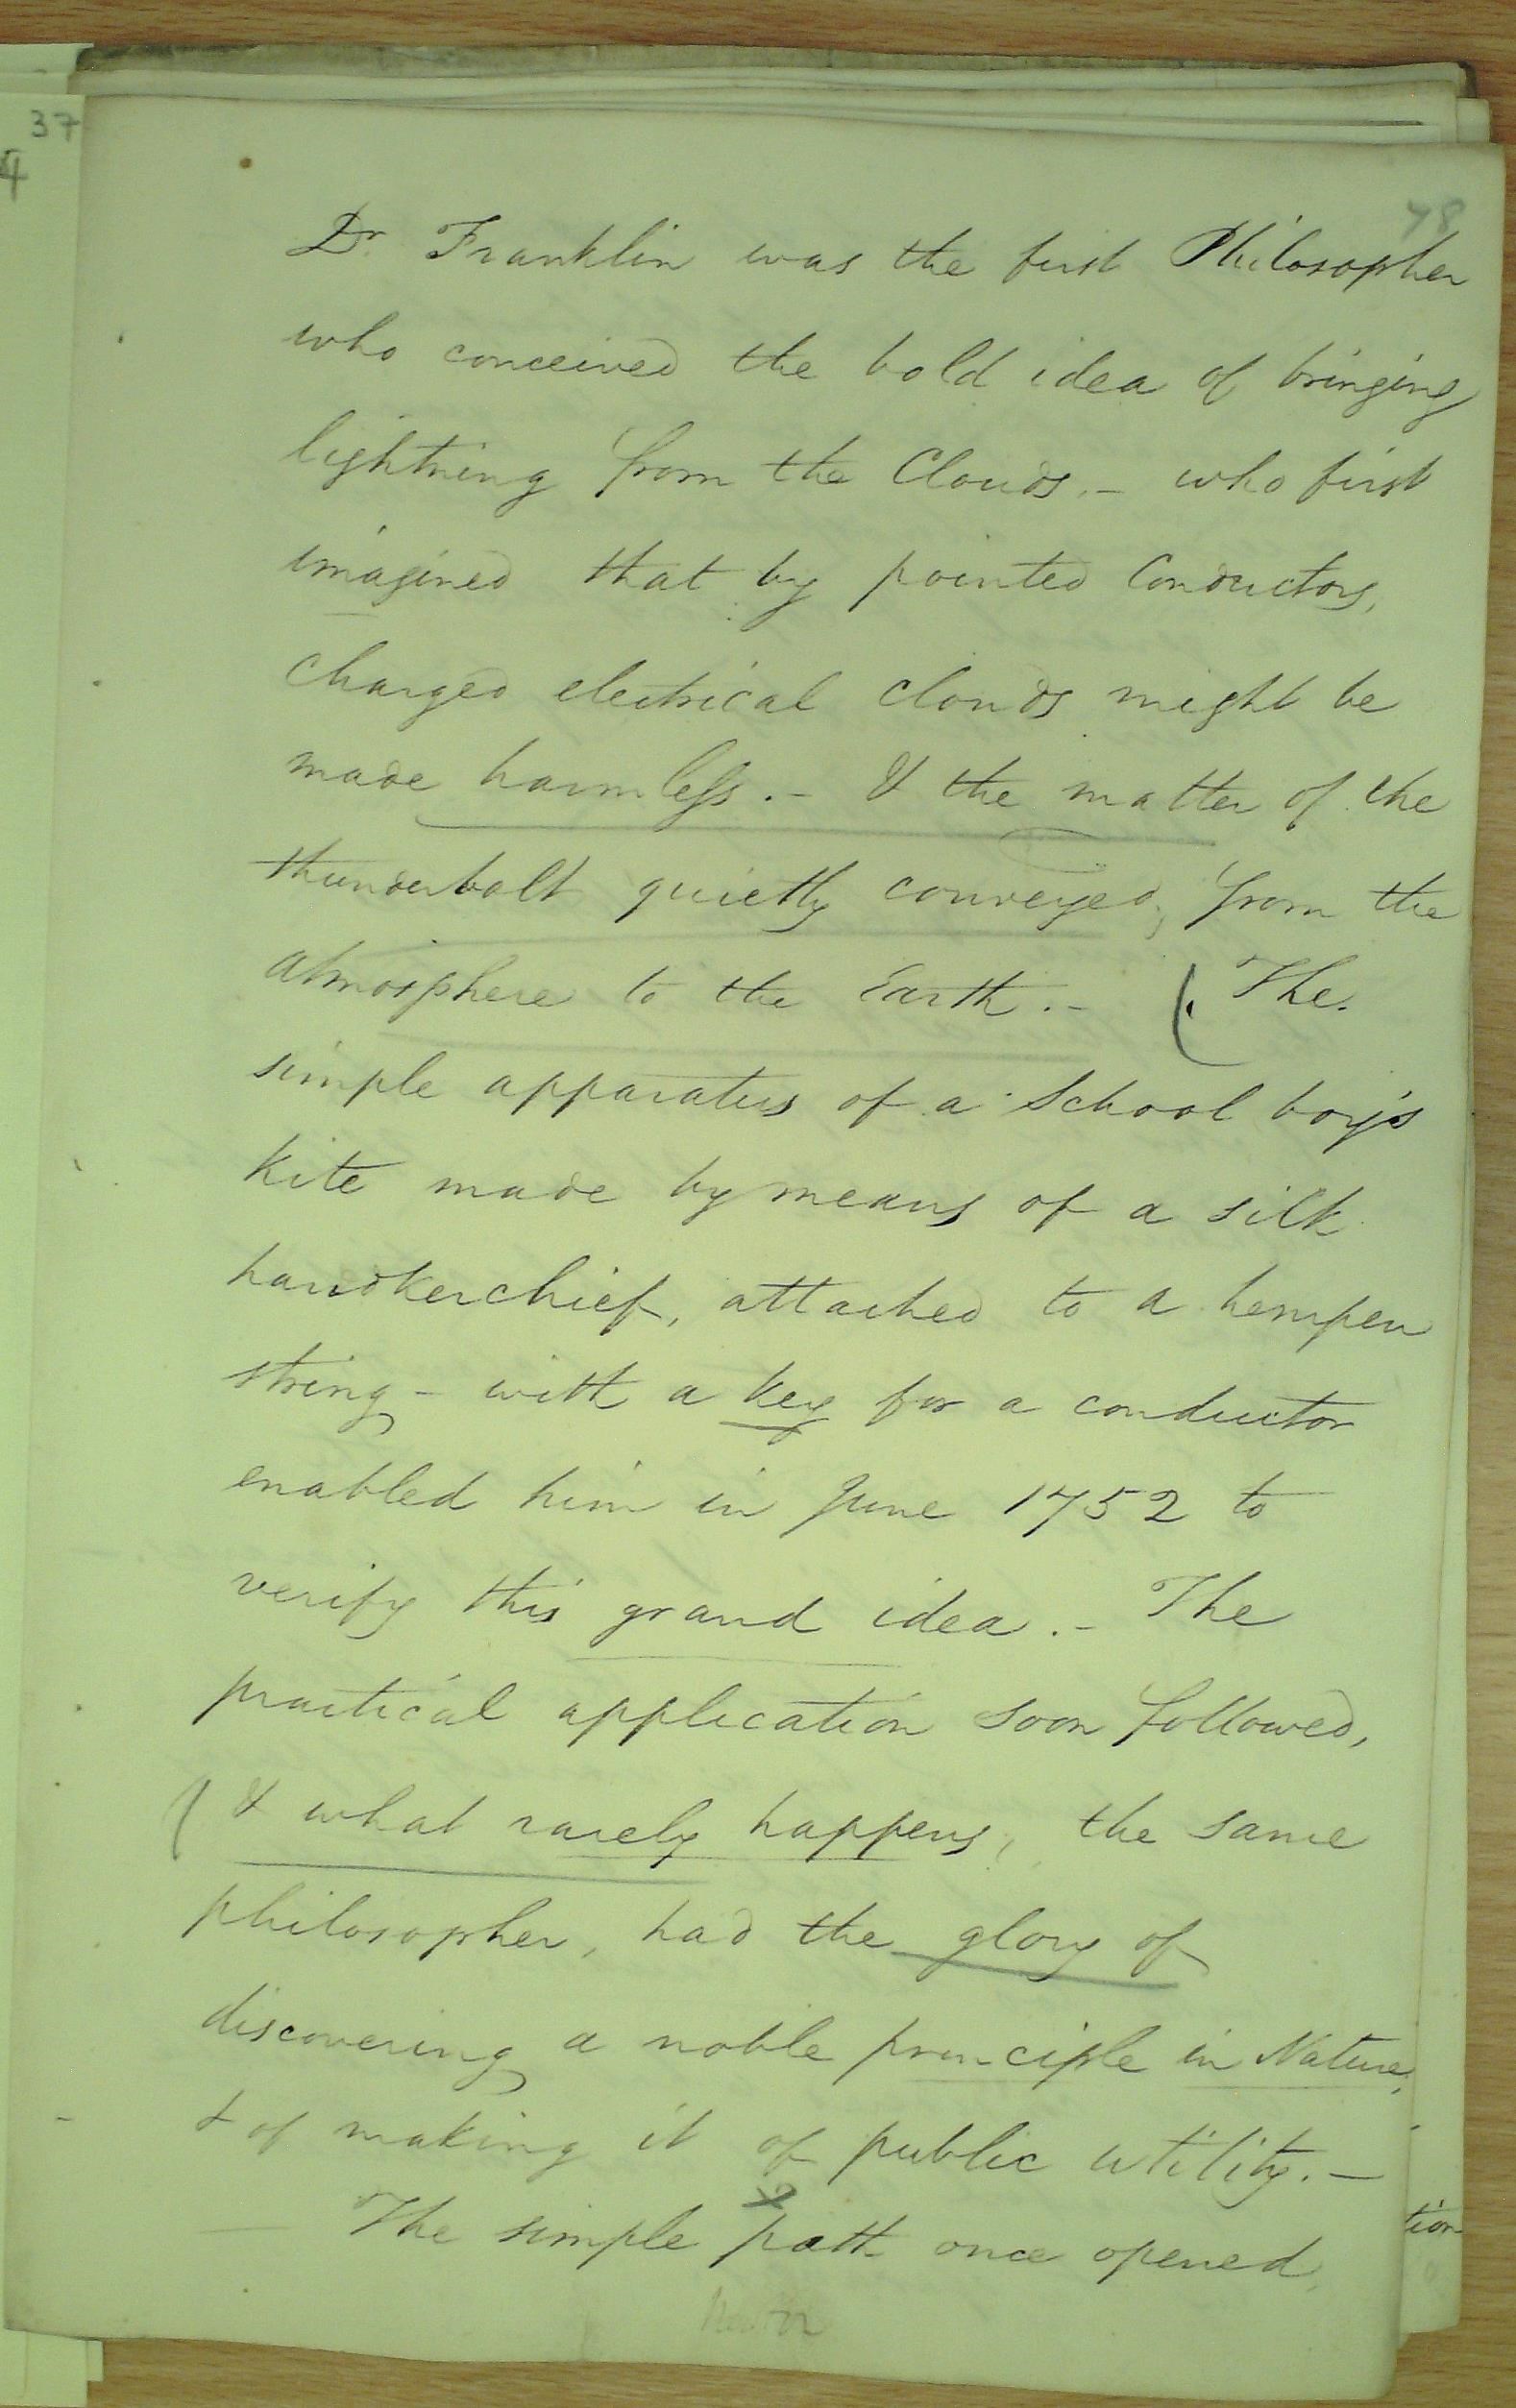 37
4
78
Dr. Franklin was the first Philosopher
who conceived the bold idea of bringing
lightning from the Clouds. - who first
imagined that by pointed Conductors,
charged electrical clouds might be
made harmless. - & the matter of the
thunderbolt quietly conveyed, from the
atmosphere to the Earth. - (. The
simple apparatus of a School boy's
kite made by means of a silk
handkerchief, attached to a hempen
string - with a key for a conductor
enabled him in June 1752 to
verify this grand idea. - The
practical application soon followed,
( & what rarely happens, the same
philosopher, had the glory of
discovering a noble principle in Nature,
& of making it of public utility. -
— The simple path once opened
tion